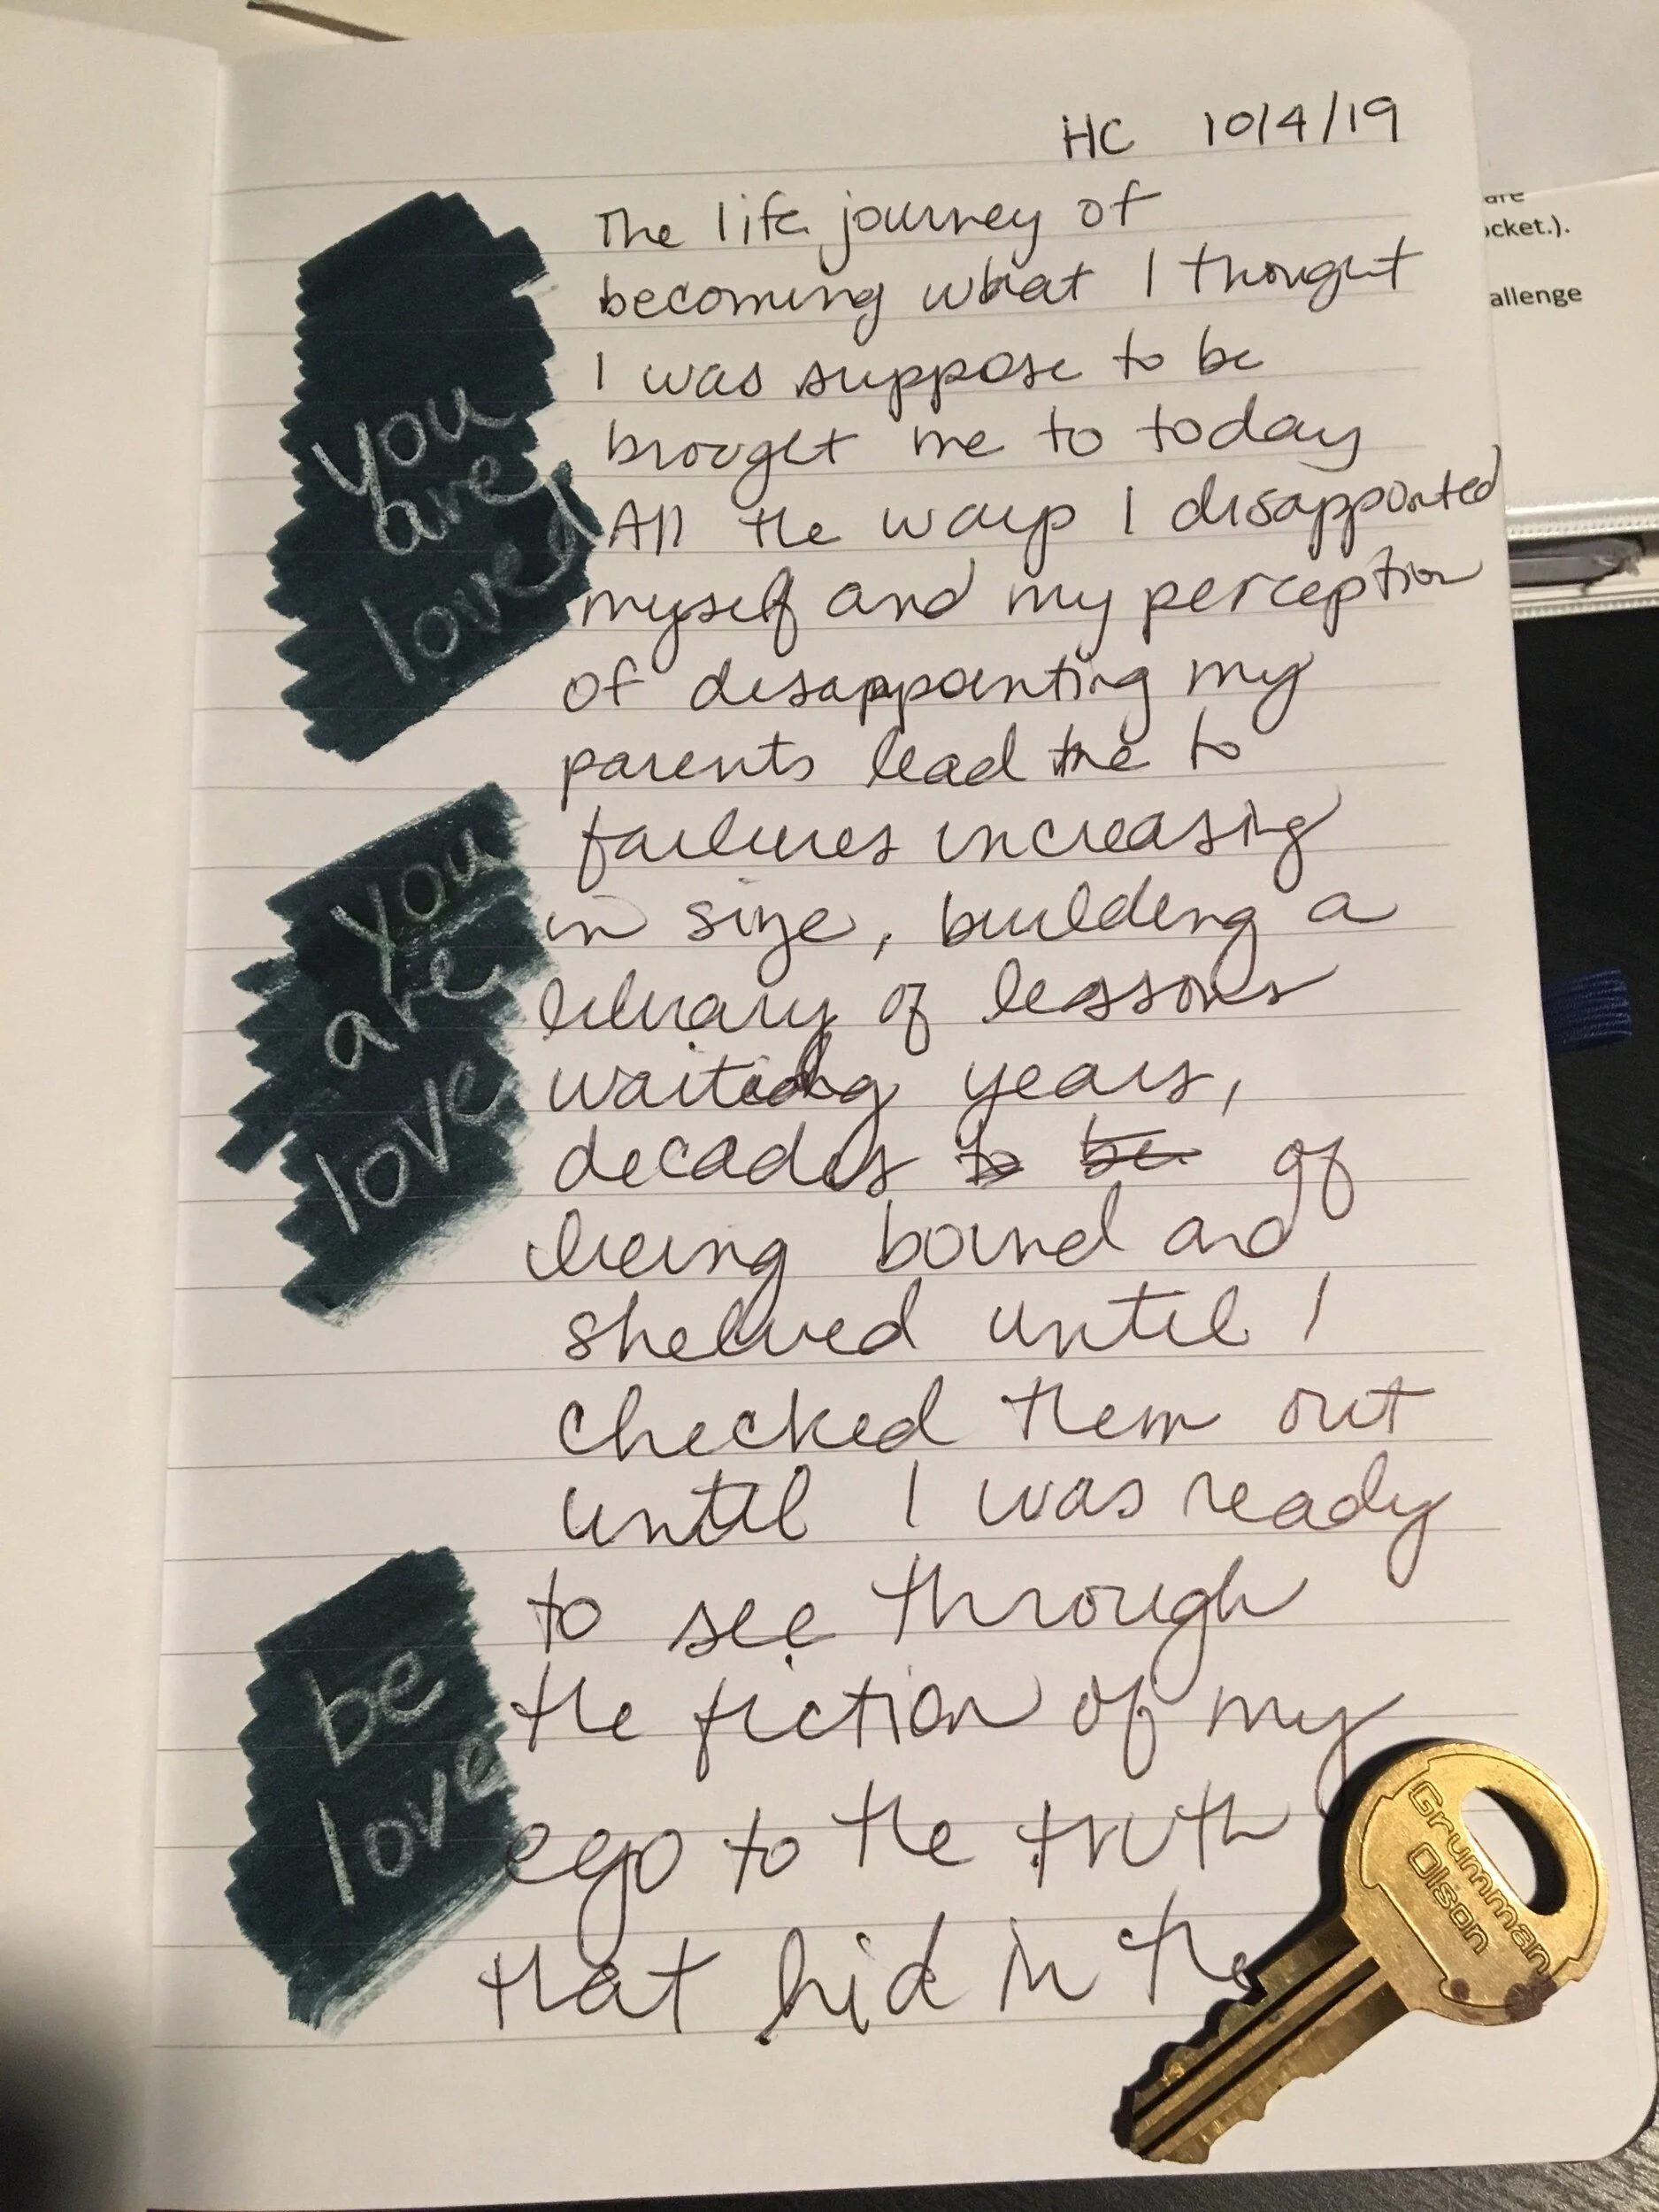 HC 10/4/19
The life journey of
becoming what I thought
I was suppose to be
brought me to today
All the ways I disappointed
myself and my perception
of disappointing my
parents lead the to
failures increasing
in size, building a
library of lessons
waiting years,
decades to be of
being bound and
shelved until I
checked them out
until I was ready
to see through
the fiction of my
ego to the truth
that hid in the
you
are
loved
you
are
love
be
love
Grumman
Olson
are
ocket.).
allenge